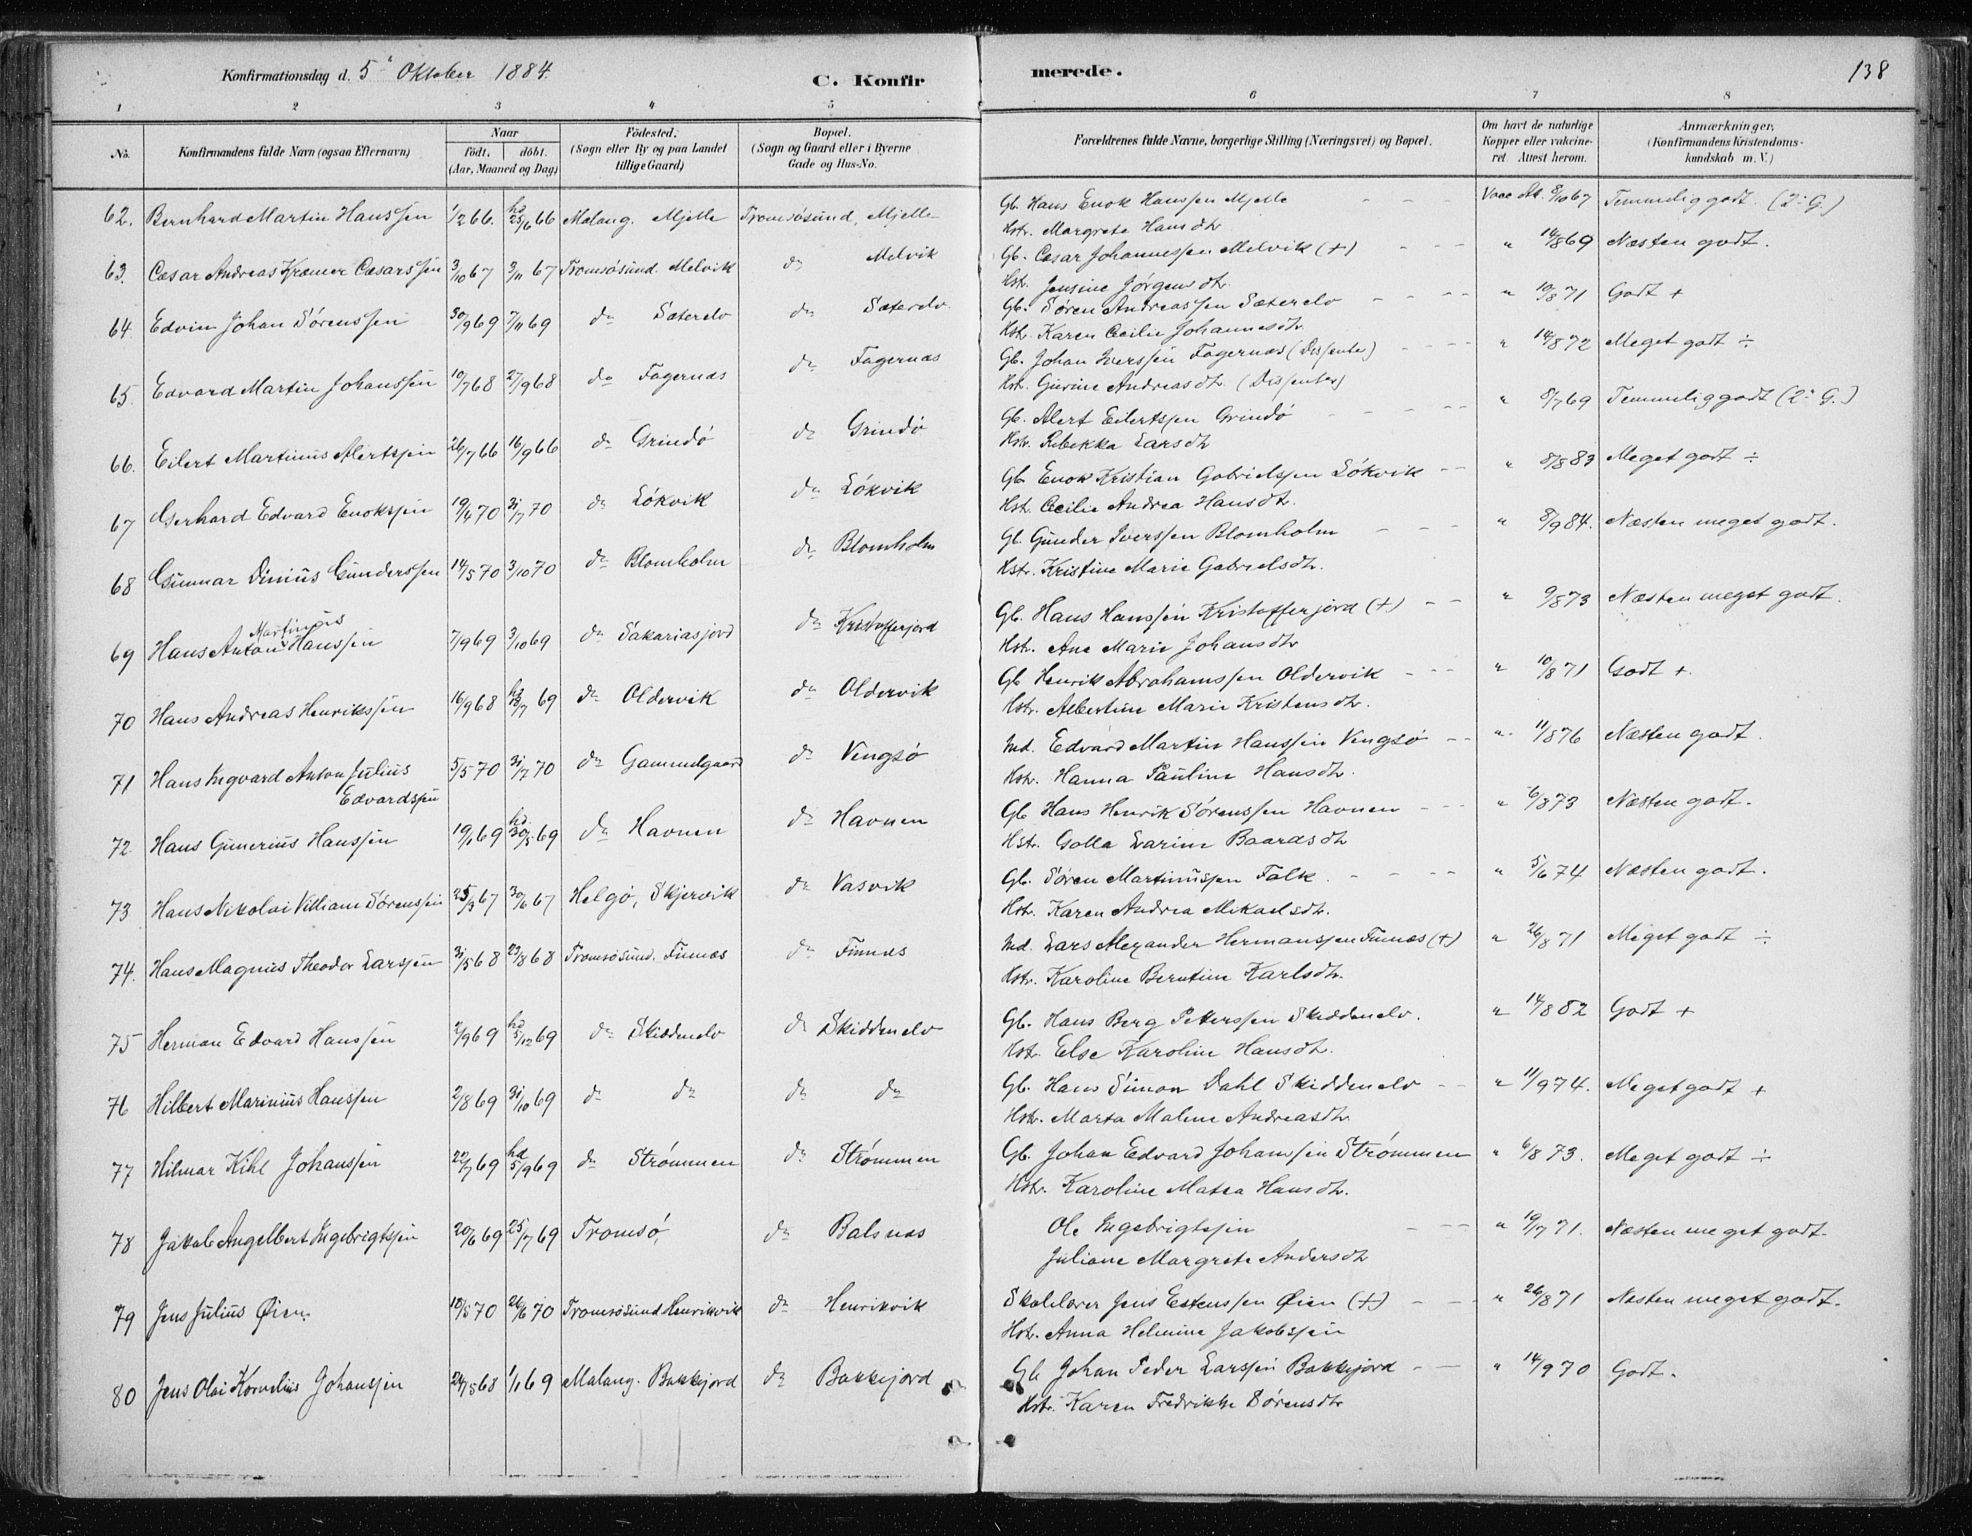 Konfirmationsdag d. 5 Oktober 1884.
C. Konfirmerede.
138
1 2 3 4 5 6 7 8
No. Konfirmandens fulde Navn (ogsaa Efternavn) Naar födt. döbt. (Aar, Maaned og Dag) Födested. (Sogn eller By og paa Landet tillige Gaard) Bopæl. (Sogn og Gaard eller i Byerne Gade og Hus-No. Forældrenes fulde Navne, borgerlige Stilling (Næringsvei) og Bopæl. Om havt de naturlige Kopper eller vakcineret. Attest herom. Anmærkninger. (Konfirmandens Kristendomskundskab m. V.)
62. Bernhard Martin Hanssen 1/2 66. hd 25/6 66 Malang. Mjelle Tromsøsund, Mjelle Gb. Hans Enok Hanssen Mjelle Vacc. Att. 8/10 67 Temmelig godt. (2. G.)
Hstr. Margrete Hansdtr
63. Cæsar Andreas Kræmer Cæsarssen 3/10 67 3/11 67 Tromsøsund. Melvik do Melvik Gb. Cæsar Johannessen Melvik (+) " 14/8 69 Næsten godt.
Hstr. Jensine Jørgensdtr.
64 Edvin Johan Sørenssen 30/9 69 7/11 69 do Sæterelv do Sæterelv Gb. Søren Andreassen Sæterelv " 10/8 71 Godt +
Hstr. Karen Cecilie Johannesdtr.
65. Edvard Martin Johanssen 10/7 68 27/9 68 do Fagernæs do Fagernæs Gb. Johan Iverssen Fagernæs (Dissenter) " 14/8 72 Meget godt ÷
Hstr. Gurine Andreasdtr. (Dissenter)
66. Eilert Martinus Alertsen 26/7 66 16/9 66 do Grindø do Grindø Gb. Alert Eilertsen Grindø " 8/7 69 Temmelig godt (2. G.)
Hstr. Rebekka Larsdtr
67 Gerhard Edvard Enoksen 19/4 70 31/7 70 do Løkvik do Løkvik Gb. Enok Kristian Gabrielssen Løkvik " 8/8 83 Meget godt ÷
Hstr. Cecilie Andrea Hansdtr.
68 Gunnar Dinius Gunderssen 14/5 70 3/10 70 do Blomholm do Blomholm Gb. Gunder Iverssen Blomholm " 8/9 84. Næsten meget godt.
Hstr. Kristine Marie Gabrielsdtr.
69 Hans Anton Martinius Hanssen 7/9 69 3/10 69 do Sakariasjord do Kristofferjord Gb. Hans Hanssen Kristofferjord (+) " 9/8 73 Næsten meget godt.
Hstr. Ane Marie Johansdtr
70 Hans Andreas Henrikssen 16/9 68 hd 69 do Oldervik do Oldervik Gb Henrik Abrahamssen Oldervik " 10/8 71 Godt +.
Hstr. Albertine Marie Kristensdtr.
71 Hans Ingvard Anton Julius Edvardsen 5/5 70 31/7 70 do Gammelgaard do Vengsø Ind. Edvard Martin Hanssen Vengsø " 11/8 76 Næsten godt.
Hstr. Hanna Pauline Hansdtr.
72 Hans Gunerius Hanssen 19/1 69 hd. 30/5 69 do Havnen do Havnen Gb Hans Henrik Sørenssen Havnen " 6/8 73 Næsten godt.
Hstr. Golla Larine Baardsdtr
73 Hans Nikolai Villiam Sørenssen 25/3 67 30/6 67 Helgø, Skjervik do Vasvik Gb. Søren Martinussen Falk. " 5/6 74 Næsten godt.
Hstr. Karen Andrea Mikaelsdtr.
74. Hans Magnus Theodor Larssen 31/5 68 23/8 68 Tromsøsund. Finnæs do Finnæs Ind. Lars Alexander Hermanssen Finnæs (+) " 26/8 71 Meget godt ÷
Hstr. Karoline Berntine Karlsdtr.
75 Herman Edvard Hanssen 2/9 69 hd 5/12 69 do Skiddenelv do Skiddenelv Gb. Hans Berg Peterssen Skiddenelv. " 14/8 82 Godt +
Hstr. Else Karoline Hansdtr.
76 Hilbert Marinius Hanssen 2/8 69 31/10 69 do do do do Gb. Hans Simon Dahl Skiddenelv " 11/9 74. Meget godt +
Hstr. Marta Malene Andreasdtr.
77 Hilmar Kihl Johanssen 22/7 69 hd 5/9 69 do Strømmen do Strømmen Gb. Johan Edvard Johanssen Strømmen " 6/8 73. Meget godt ÷
Hstr. Karoline Matea Hansdtr.
78 Jakob Angelbert Ingebrigtsen 20/6 69 25/7 69 Tromsø, do Balsnæs Ole Ingebrigtsen " 19/7 71. Næsten meget godt.
Juliane Margrete Andersdtr
79 Jens Julius Øien. 18/5 70 26/6 70 Tromsøsund Henrikvik do Henrikvik Skolelærer Jens Estenssen Øien (+) " 26/8 71 Næsten meget godt.
Hstr. Anna Helmine Jakobssen
80 Jens Olai Kornelius Johanssen 24/5 68 1/1 69 Malang. Bakkejord do Bakkejord Gb Johan Peder Larssen Bakkejord " 14/9 70 Godt.
Hstr. Karen Fredrikke Sørensdtr